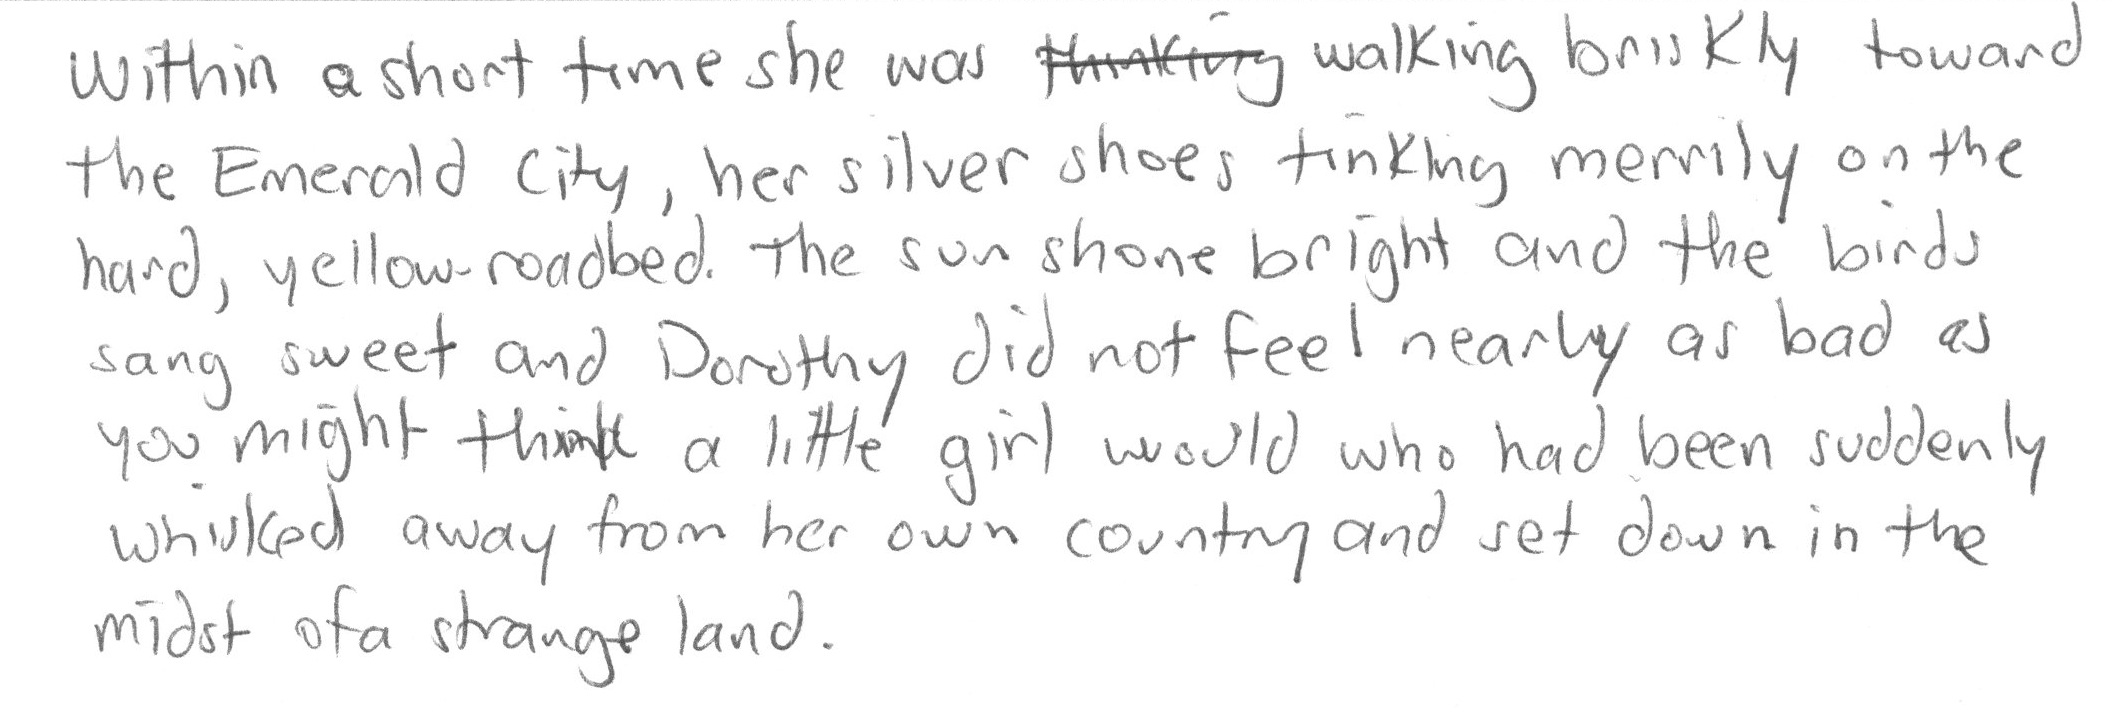 Within a short time she was thinking walking briskly toward
the Emerald City, her silver shoes tinkling merrily on the
hard, yellow roadbed. The sun shone bright and the birds
sang sweet and Dorothy did not feel nearly as bad as
you might think a little girl would who had been suddenly
whisked away from her own country and set down in the
midst of a strange land.